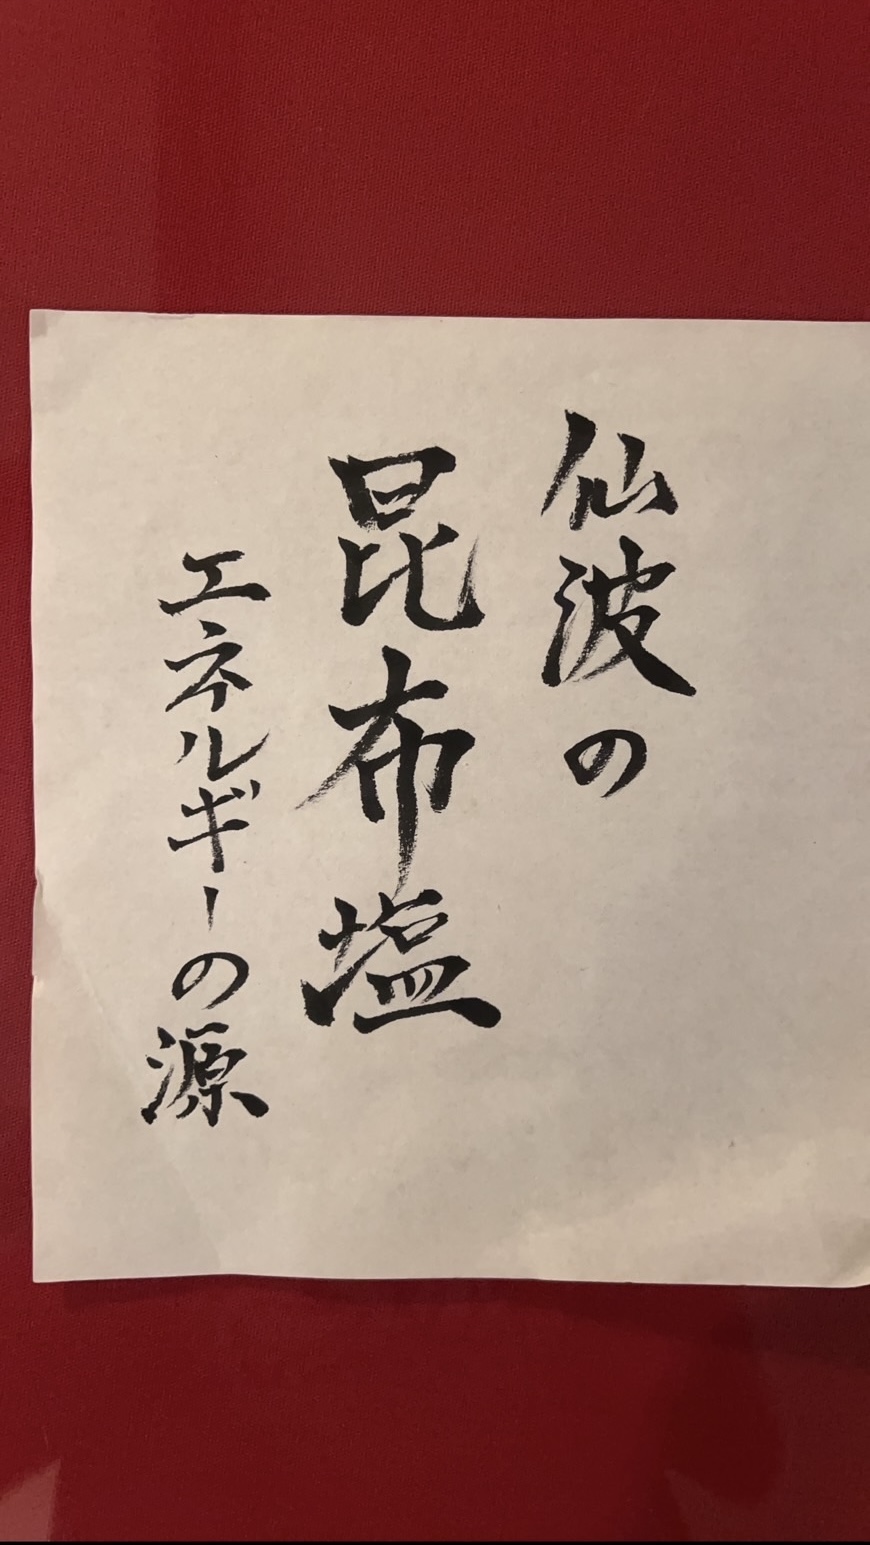 仙波の
昆布塩
エネルギーの源